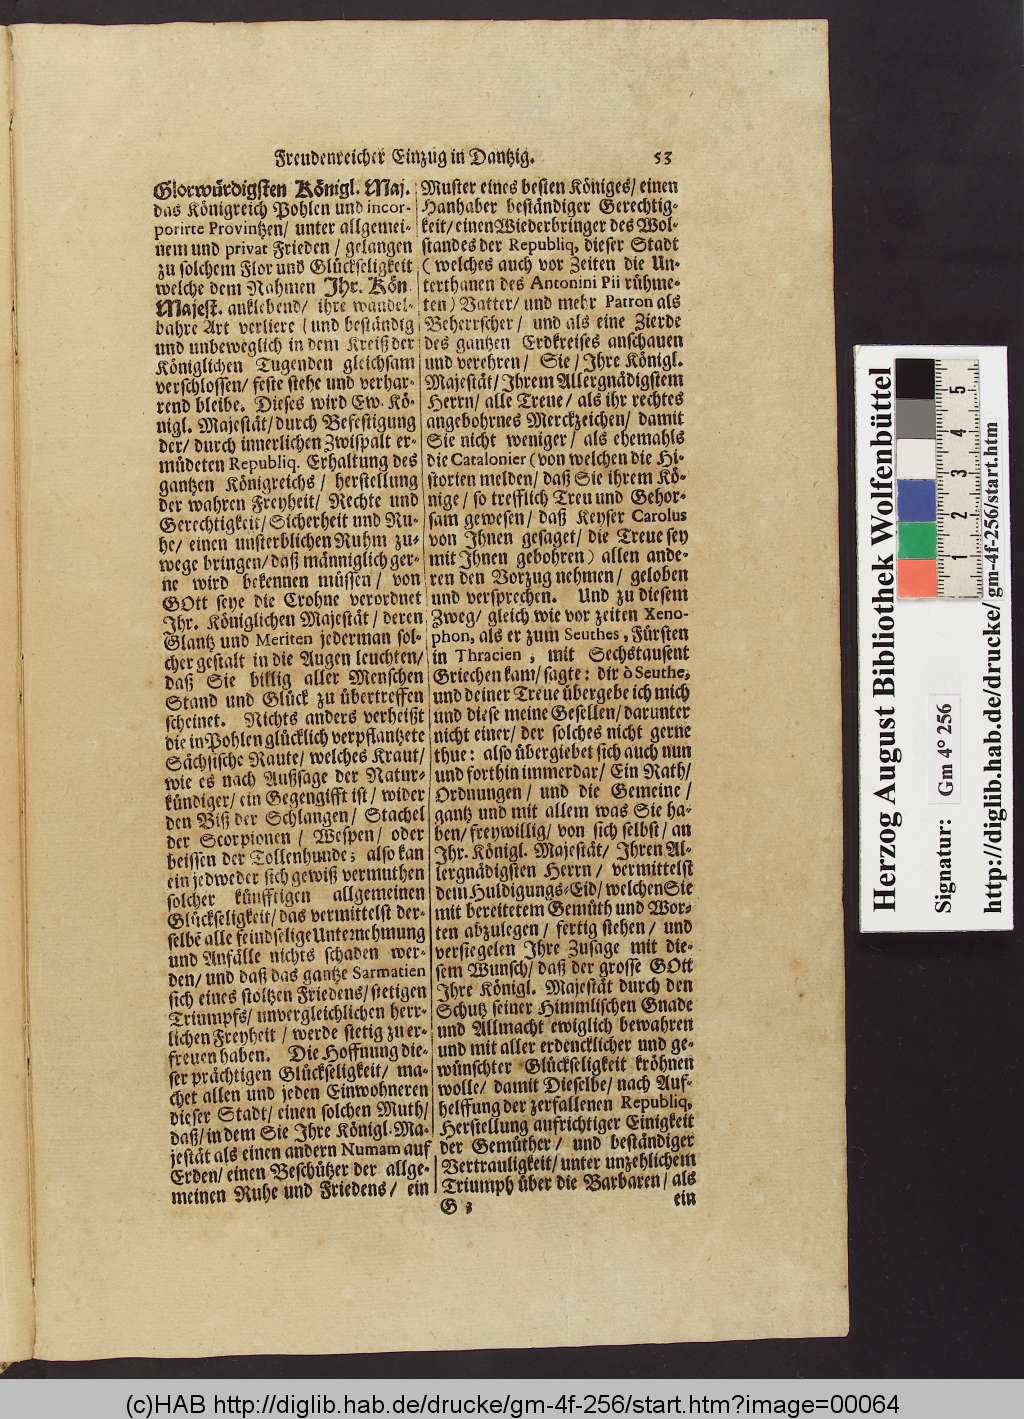 Freudenreicher Einzug in Dantzig. 53
Glorwürdigsten Königl. Maj.
das Königreich Pohlen und incor-
porirte Provintzen/ unter allgemei-
nem und privat Frieden/ gelangen
zu solchem Flor und Glückseligkeit
welche dem Nahmen Ihr. Kön.
Majest. anklebend/ ihre wandel-
bahre Art verliere (und beständig
und unbeweglich in dem Kreiß der
Königlichen Tugenden gleichsam
verschlossen/ feste stehe und verhar-
rend bleibe. Dieses wird Ew. Kö-
nigl. Majestät/ durch Befestigung
der/ durch innerlichen Zwispalt er-
müdeten Republiq. Erhaltung des
gantzen Königreichs/ herstellung
der wahren Freyheit/ Rechte und
Gerechtigkeit/ Sicherheit und Ru-
he/ einen unsterblichen Ruhm zu-
wege bringen/ daß männiglich ger-
ne wird bekennen müssen/ von
GOtt seye die Crohne verordnet
Ihr. Königlichen Majestät/ deren
Glantz und Meriten jederman sol-
cher gestalt in die Augen leuchten/
daß Sie billig aller Menschen
Stand und Glück zu übertreffen
scheinet. Nichts anders verheißt
die in Pohlen glücklich verpflantzete
Sächsische Raute/ welches Kraut/
wie es nach Außsage der Natur-
kündiger/ ein Gegengifft ist/ wider
den Biß der Schlangen/ Stachel
der Scorpionen/ Wespen/ oder
beissen der Tollenhunde; also kan
ein jedweder sich gewiß vermuthen
solcher künfftigen allgemeinen
Glückseligkeit/ das vermittelst der-
selbẽ alle feindselige Unternehmung
und Anfälle nichts schaden wer-
den/ und daß das gantze Sarmatien
sich eines stoltzen Friedens/ stetigen
Triumpfs/ unvergleichlichen herr-
lichen Freyheit/ werde stetig zu er-
freuen haben. Die Hoffnung die-
ser prächtigen Glückseligkeit/ ma-
chet allen und jeden Einwohneren
dieser Stadt/ einen solchen Muth/
daß/ in dem Sie Ihre Königl. Ma-
jestät als einen andern Numam auf
Erden/ einen Beschützer der allge-
meinen Ruhe und Friedens/ ein
Muster eines besten Königes/ einen
Hanhaber beständiger Gerechtig-
keit/ einen Wiederbringer des Wol-
standes der Republiq, dieser Stadt
(welches auch vor Zeiten die Un-
terthanen des Antonini Pii rühme-
ten) Vatter/ und mehr Patron als
Beherrscher/ und als eine Zierde
des gantzen Erdkreises anschauen
und verehren/ Sie/ Ihre Königl.
Majestät/ Ihrem Allergnädigstem
Herrn/ alle Treue/ als ihr rechtes
angebohrnes Merckzeichen/ damit
Sie nicht weniger/ als ehemahls
die Catalonier (von welchen die Hi-
storien melden/ daß Sie ihrem Kö-
nige/ so trefflich Treu und Gehor-
sam gewesen/ daß Keyser Carolus
von Ihnen gesaget/ die Treue sey
mit Ihnen gebohren) allen ande-
ren den Vorzug nehmen/ geloben
und versprechen. Und zu diesem
Zweg/ gleich wie vor zeiten Xeno-
phon, als er zum Seuthes, Fürsten
in Thracien, mit Sechstausent
Griechen kam/ sagte: dir ò Seuthe,
und deiner Treue übergebe ich mich
und diese meine Gesellen/ darunter
nicht einer/ der solches nicht gerne
thue: also übergiebet sich auch nun
und forthin immerdar/ Ein Rath/
Ordnungen/ und die Gemeine/
gantz und mit allem was Sie ha-
ben/ freywillig/ von sich selbst/ an
Ihr. Königl. Majestät/ Ihren Al-
lergnädigsten Herrn/ vermittelst
dem Huldigungs-Eid/ welchen Sie
mit bereitetem Gemüth und Wor-
ten abzulegen/ fertig stehen/ und
versiegelen Ihre Zusage mit die-
sem Wunsch/ daß der grosse GOtt
Ihre Königl. Majestät durch den
Schutz seiner Himmlischen Gnade
und Allmacht ewiglich bewahren
und mit aller erdencklicher und ge-
wünschter Glückseligkeit kröhnen
wolle/ damit Dieselbe/ nach Auf-
helffung der zerfallenen Republiq,
Herstellung aufrichtiger Einigkeit
der Gemüther/ und beständiger
Vertrauligkeit/ unter unzehlichem
Triumph über die Barbaren/ als
G 3 ein
Herzog August Bibliothek Wolfenbüttel
Signatur: Gm 4° 256
http://diglib.hab.de/drucke/ gm-4f-256/start.htm
1 2 3 4 5
(c)HAB http://diglib.hab.de/drucke/gm-4f-256/start.htm?image=00064